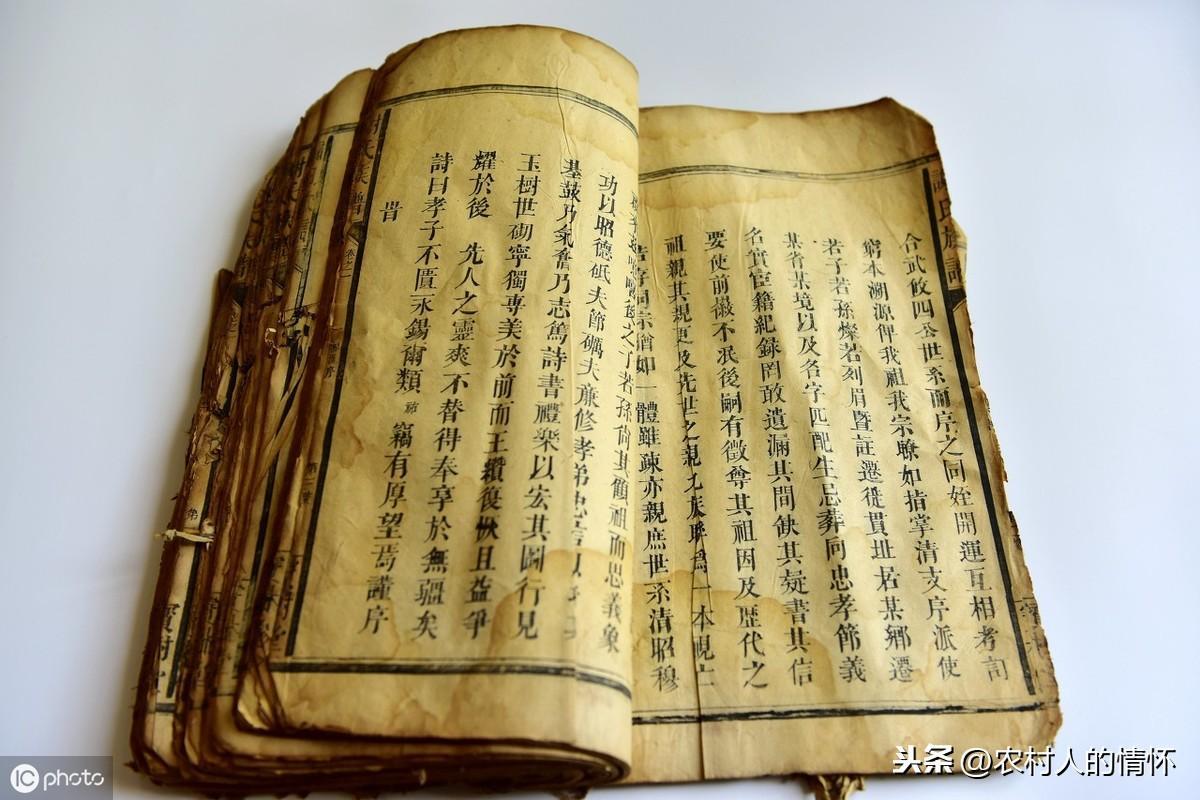 謝氏族譜
合武攸四公世系而序之同姪開運互相考訂
窮本溯源俾我祖我宗瞭如指掌清支序派使
若子若孫燦若列眉暨註遷徙貫址居某鄉遷
某省某境以及名字匹配生忌葬向忠孝節義
名實宦籍紀録罔敢遺漏其間缺其疑書其信
要使前徽不泯後嗣有徵尊其祖因及歷代之
祖親其親更及先世之親九族聯爲一本視亡
同宗猶如一體雖疎亦親庶世系清昭穆
之子若孫尚其顧祖而思義象
功以昭德砥夫節礪夫廉修孝弟忠
基裘乃氣奮乃志篤詩書禮樂以宏其圖行見
玉樹世砌寧獨專美於前而王纘復恢且益爭
耀於後 先人之靈爽不替得奉享於無疆矣
詩曰孝子不匱永錫爾類 竊有厚望焉謹序
旹
氏族譜
卷之一
寶樹堂
IC photo
头条 @农村人的情怀